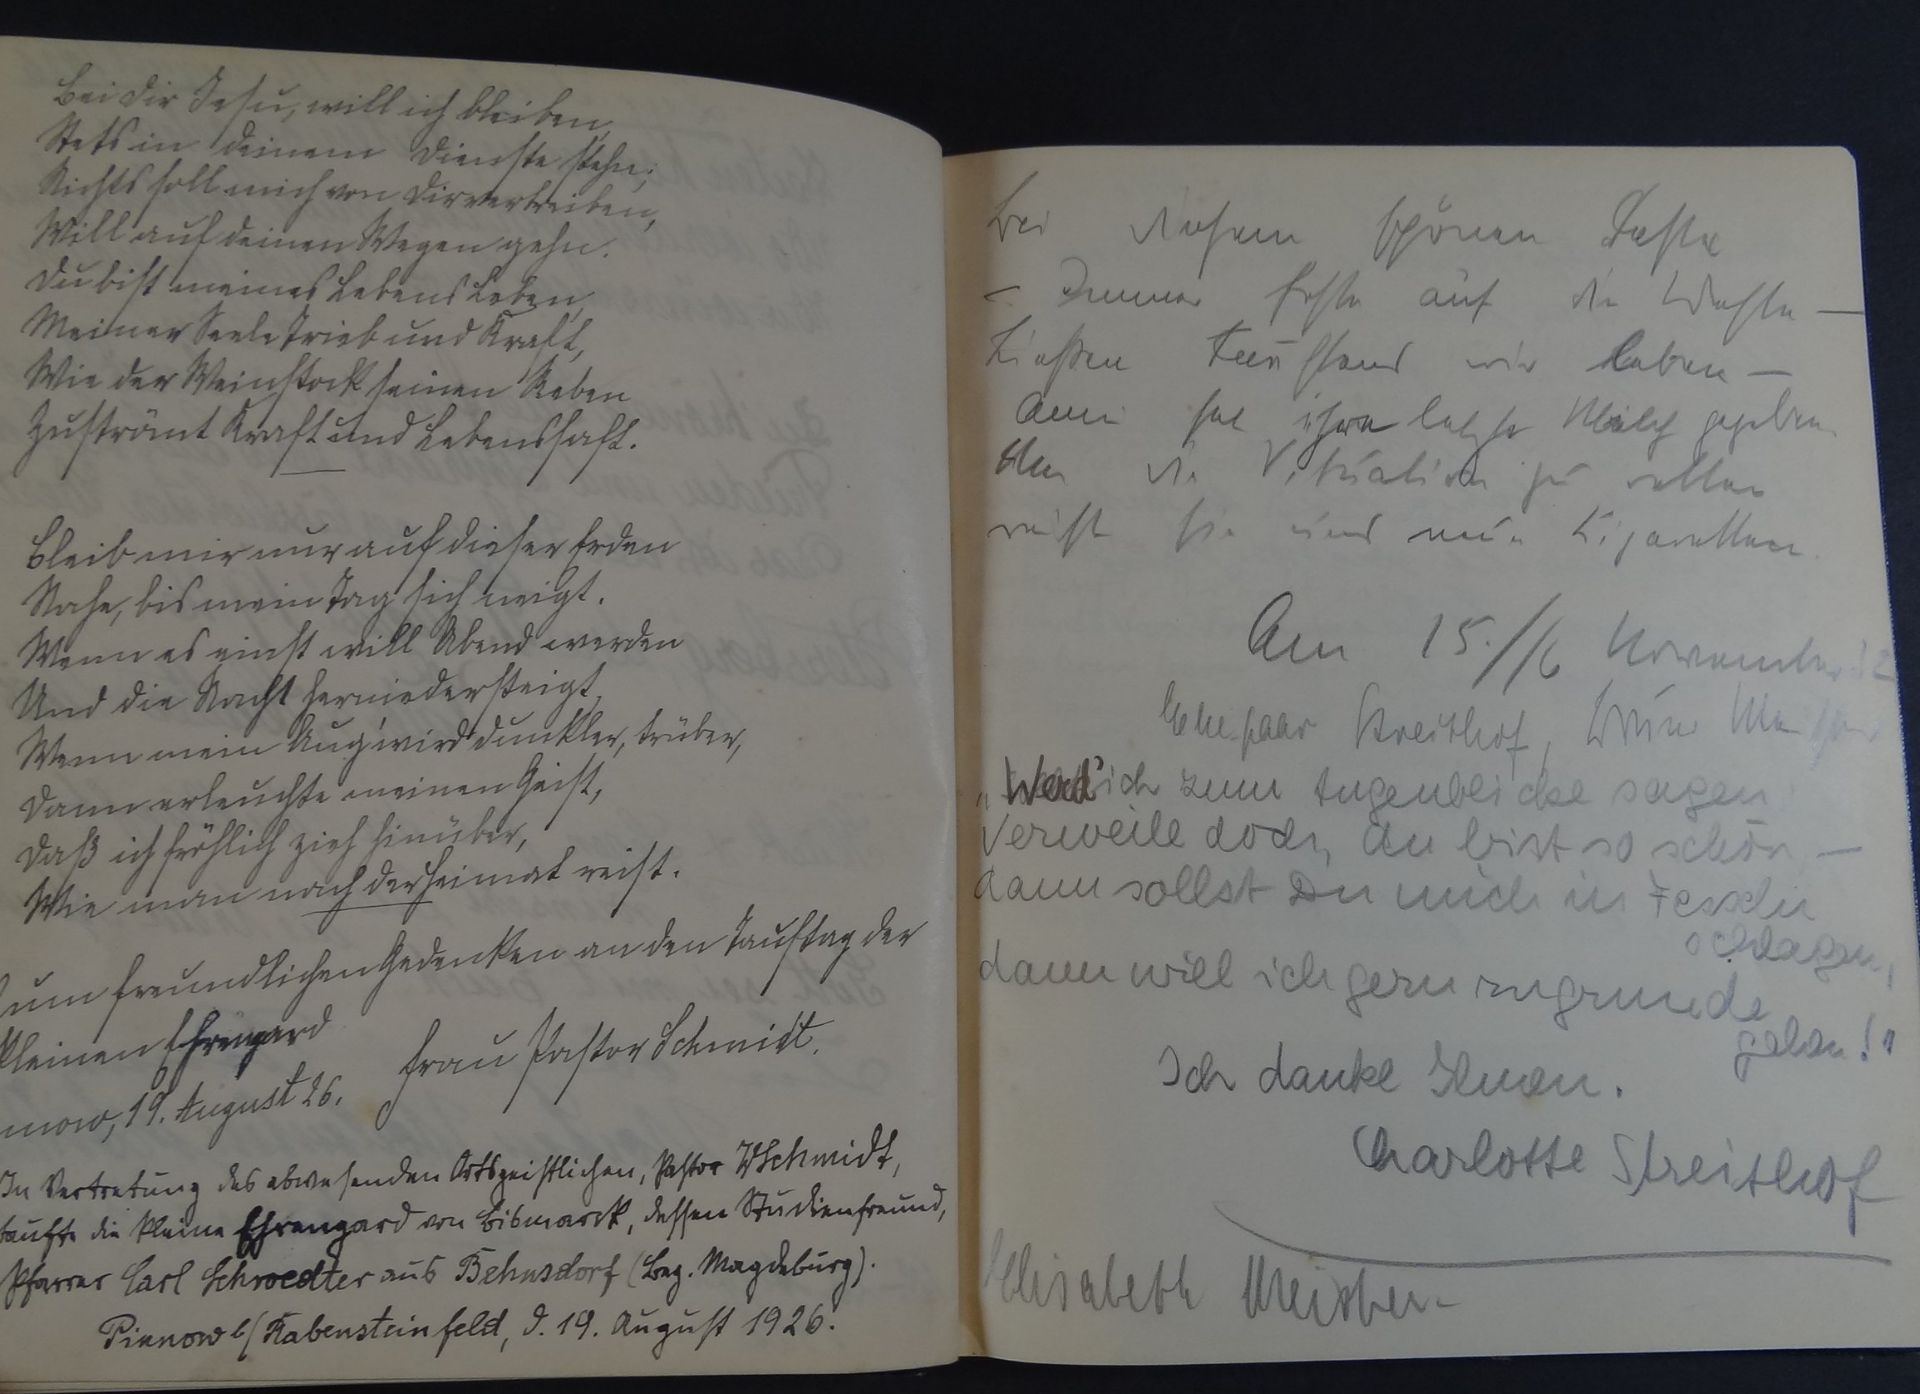 Bei dir Jesu, will ich bleiben,
Stets in deinem Dienste stehn;
Nichts soll mich von dir vertreiben,
Will auf deinen Wegen gehn.
Du bist meines Lebens Leben,
Meiner Seele Trieb und Kraft,
Wie der Weinstock seinen Reben
Zuströmt Kraft und Lebenssaft.
Bleib mir nur auf dieser Erden
Nahe, bis mein Tag sich neigt.
Wenn es einst will Abend werden
Und die Nacht herniedersteigt,
Wenn mein Aug' wird dunkler, trüber,
Dann erleuchte meinen Geist,
Daß ich fröhlich zieh hinüber,
Wie man nach der Heimat reist.
Zum freundlichen Gedenken an den Tauftag der
kleinen Ehrengard
Frau Pastor Schmidt.
nnow, 19. August 26.
In Vertretung des abwesenden Ortsgeistlichen, Pastor Schmidt,
taufte die kleine Ehrengard von Bismarck, dessen Studienfreund,
Pfarrer Carl Schroedter aus Behnsdorf (Bez. Magdeburg).
Pinnow b/Rabensteinfeld, d. 19. August 1926.
Bei diesem schönen Feste
– Immer feste auf die Weste –
Ließen wir leben –
hat ihre letzte Milch gegeben
Um die Situation zu retten
reicht sie uns nun Zigaretten.
Am 15./16 November
Ehepaar Streithof,
"Werd' ich zum Augenblicke sagen
Verweile doch, du bist so schön, –
dann sollst Du mich in Fesseln
schlagen,
dann will ich gern zugrunde
gehen!"
Ich danke Ihnen.
Charlotte Streithof
Elisabeth Meister